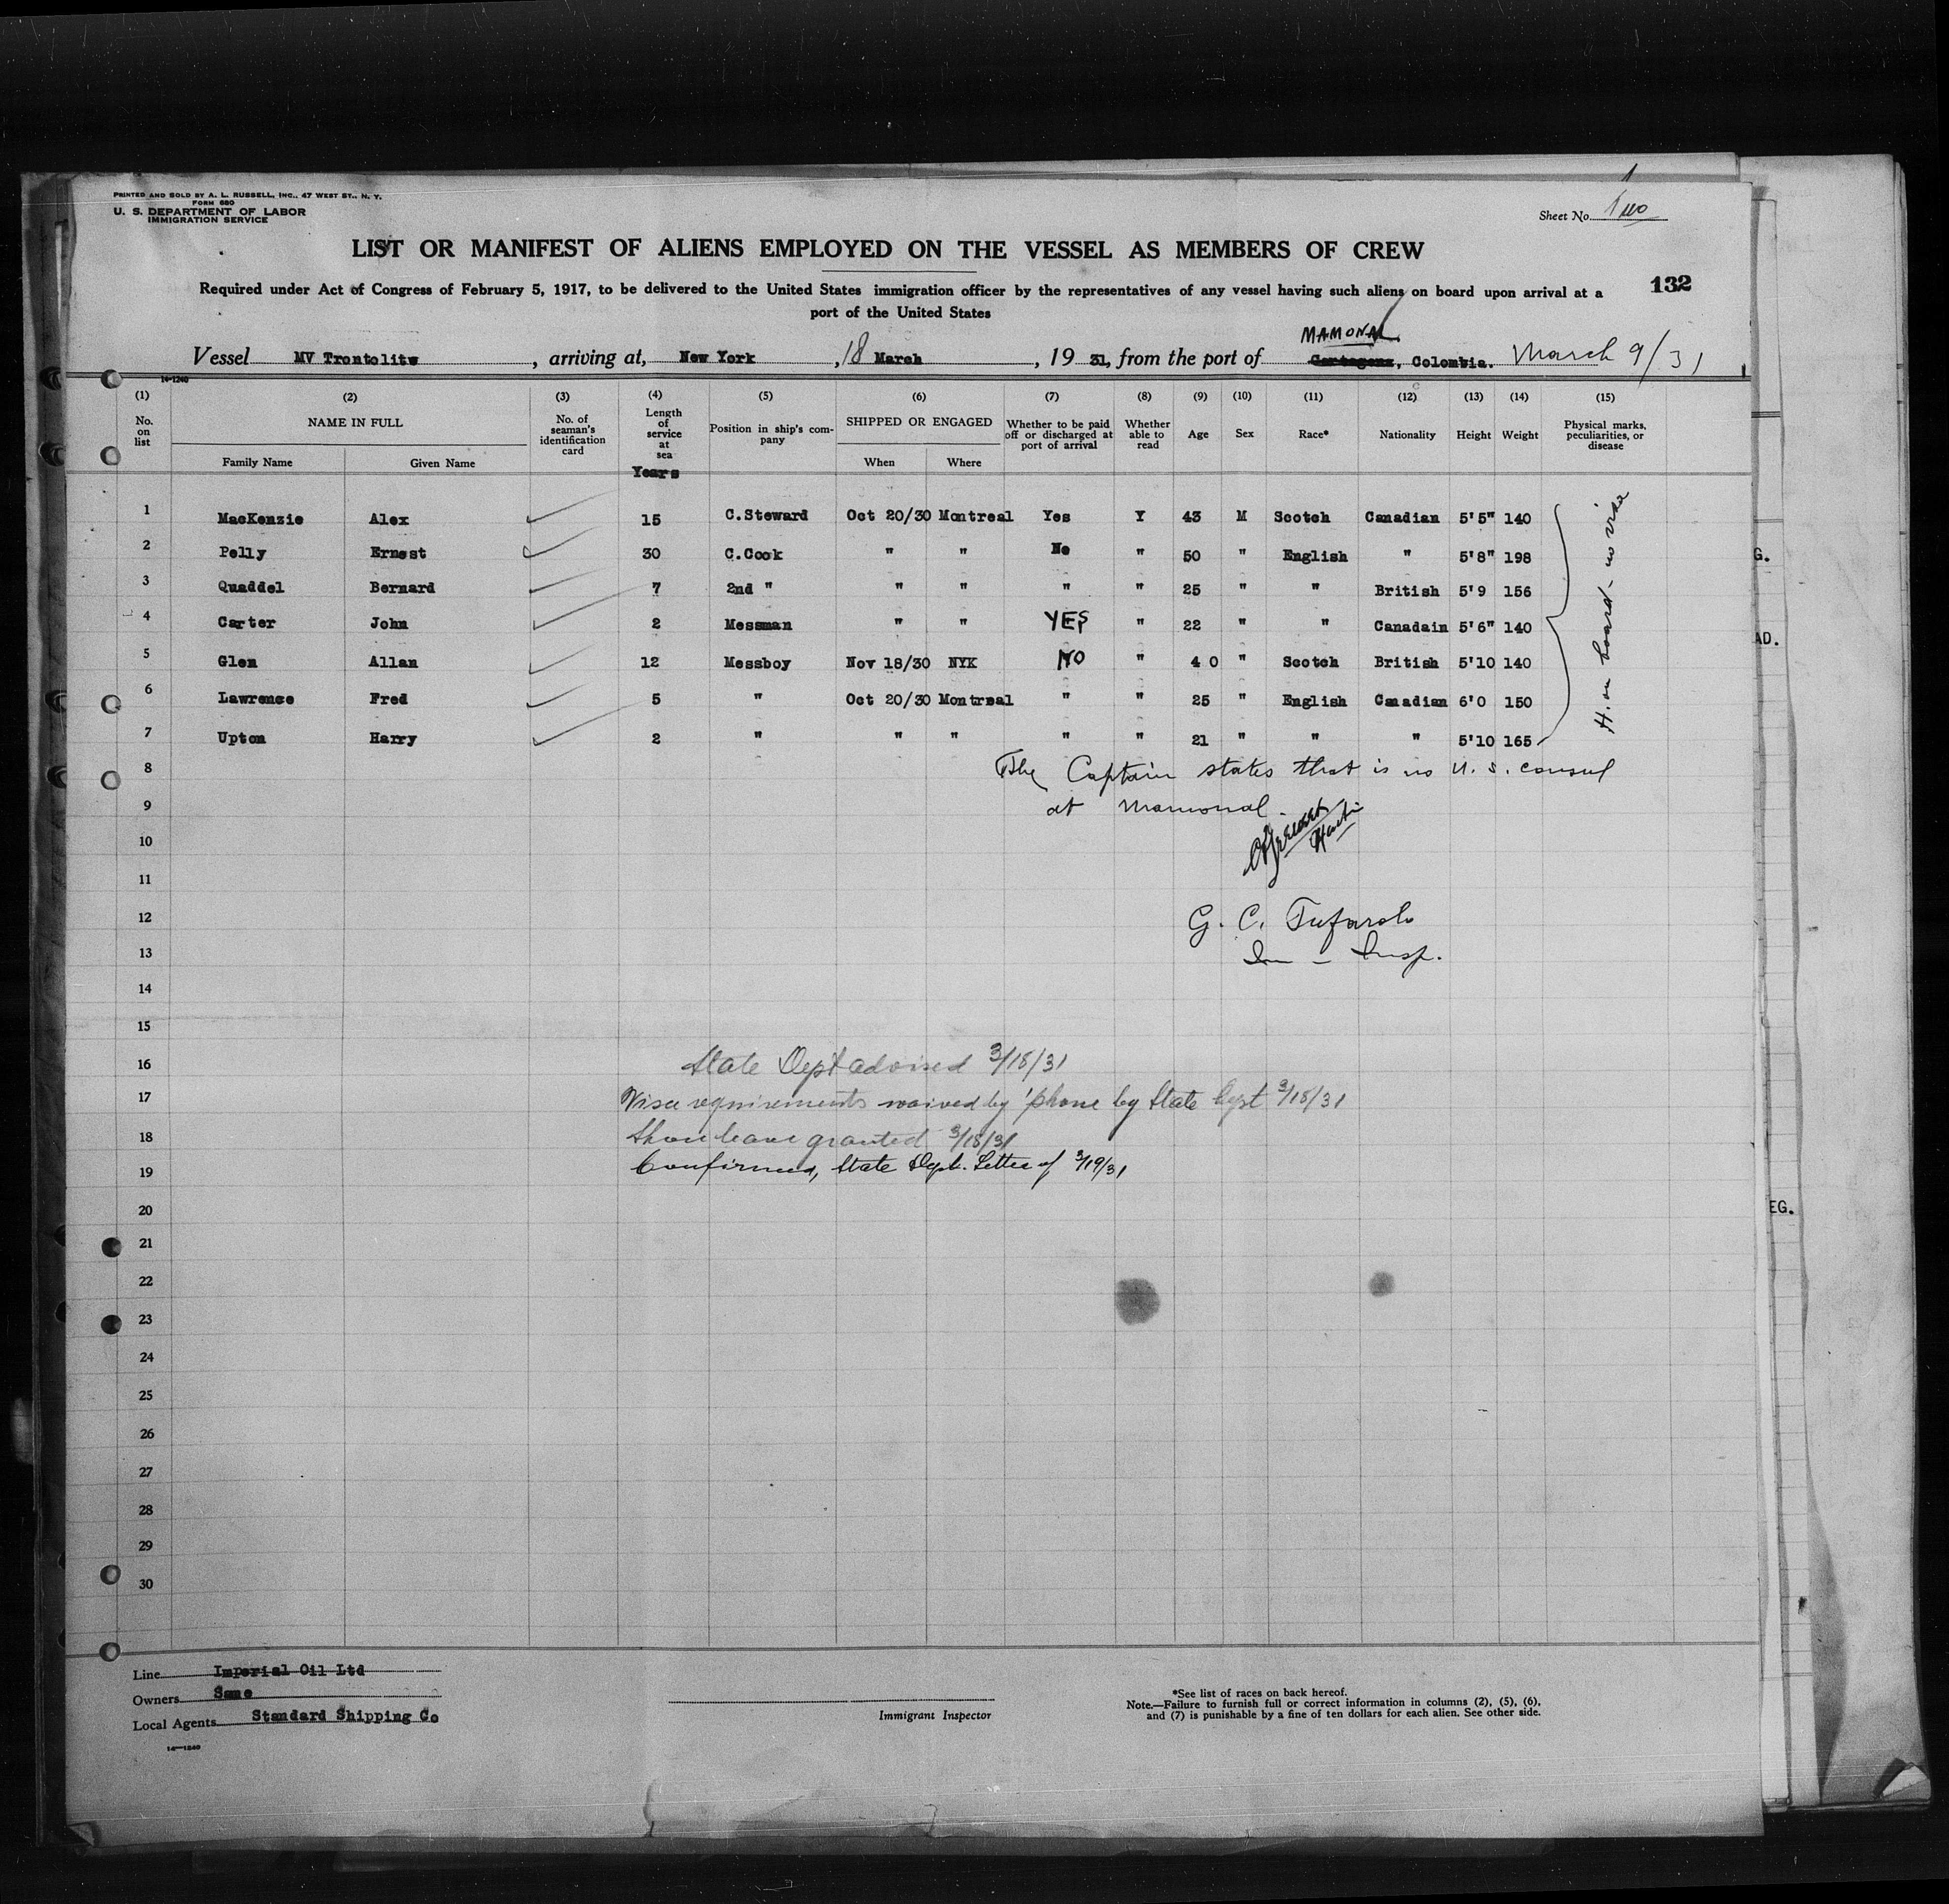 PRINTED AND SOLD BY A. L. RUSSELL, INC., 47 WEST ST., N. Y.
FORM 680
U. S. DEPARTMENT OF LABOR
IMMIGRATION SERVICE
Sheet No. Two
LIST OR MANIFEST OF ALIENS EMPLOYED ON THE VESSEL AS MEMBERS OF CREW
132
Required under Act of Congress of February 5, 1917, to be delivered to the United States immigration officer by the representatives of any vessel having such aliens on board upon arrival at a
port of the United States
MAMONAL
Vessel MV Trontolite, arriving at, New York, 18 March, 19 31, from the port of Cartagena, Colombia. March 9/31
14-1240
(1) (2) (3) (4) (5) (6) (7) (8) (9) (10) (11) (12) (13) (14) (15)
No. on list NAME IN FULL Family Name Given Name No. of seaman's identification card Length of service at sea Years Position in ship's company SHIPPED OR ENGAGED When Where Whether to be paid off or discharged at port of arrival Whether able to read Age Sex Race* Nationality Height Weight Physical marks, peculiarities, or disease
1 MacKenzie Alex 15 C.Steward Oct 20/30 Montreal Yes Y 43 M Scotch Canadian 5'5" 140
2 Pelly Ernest 30 C.Cook " " No " 50 " English " 5'8" 198
3 Quaddel Bernard 7 2nd " " " " " 25 " " British 5'9 156
4 Carter John 2 Messman " " YES " 22 " " Canadain 5'6" 140
5 Glen Allan 12 Messboy Nov 18/30 NYK NO " 4 0 " Scotch British 5'10 140
6 Lawrence Fred 5 " Oct 20/30 Montreal " " 25 " English Canadian 6'0 150
7 Upton Harry 2 " " " " " 21 " " " 5'10 165
H. on board - no visa
8 The Captain states that is no U. S. consul
9 at Mamonal.
10
11
12 G. C. Tufarolo
13 Im - Insp.
14
15
16 State Dept advised 3/18/31
17 Visa requirements waived by 'phone by State Dept 3/18/31
18 Shore leave granted 3/18/31
19 Confirmed, State Dept. Letter of 3/19/31
20
21
22
23
24
25
26
27
28
29
30
Line Imperial Oil Ltd
Owners Same
Local Agents Standard Shipping Co
14-1240
Immigrant Inspector
*See list of races on back hereof.
Note.—Failure to furnish full or correct information in columns (2), (5), (6),
and (7) is punishable by a fine of ten dollars for each alien. See other side.
G.
AD.
EG.